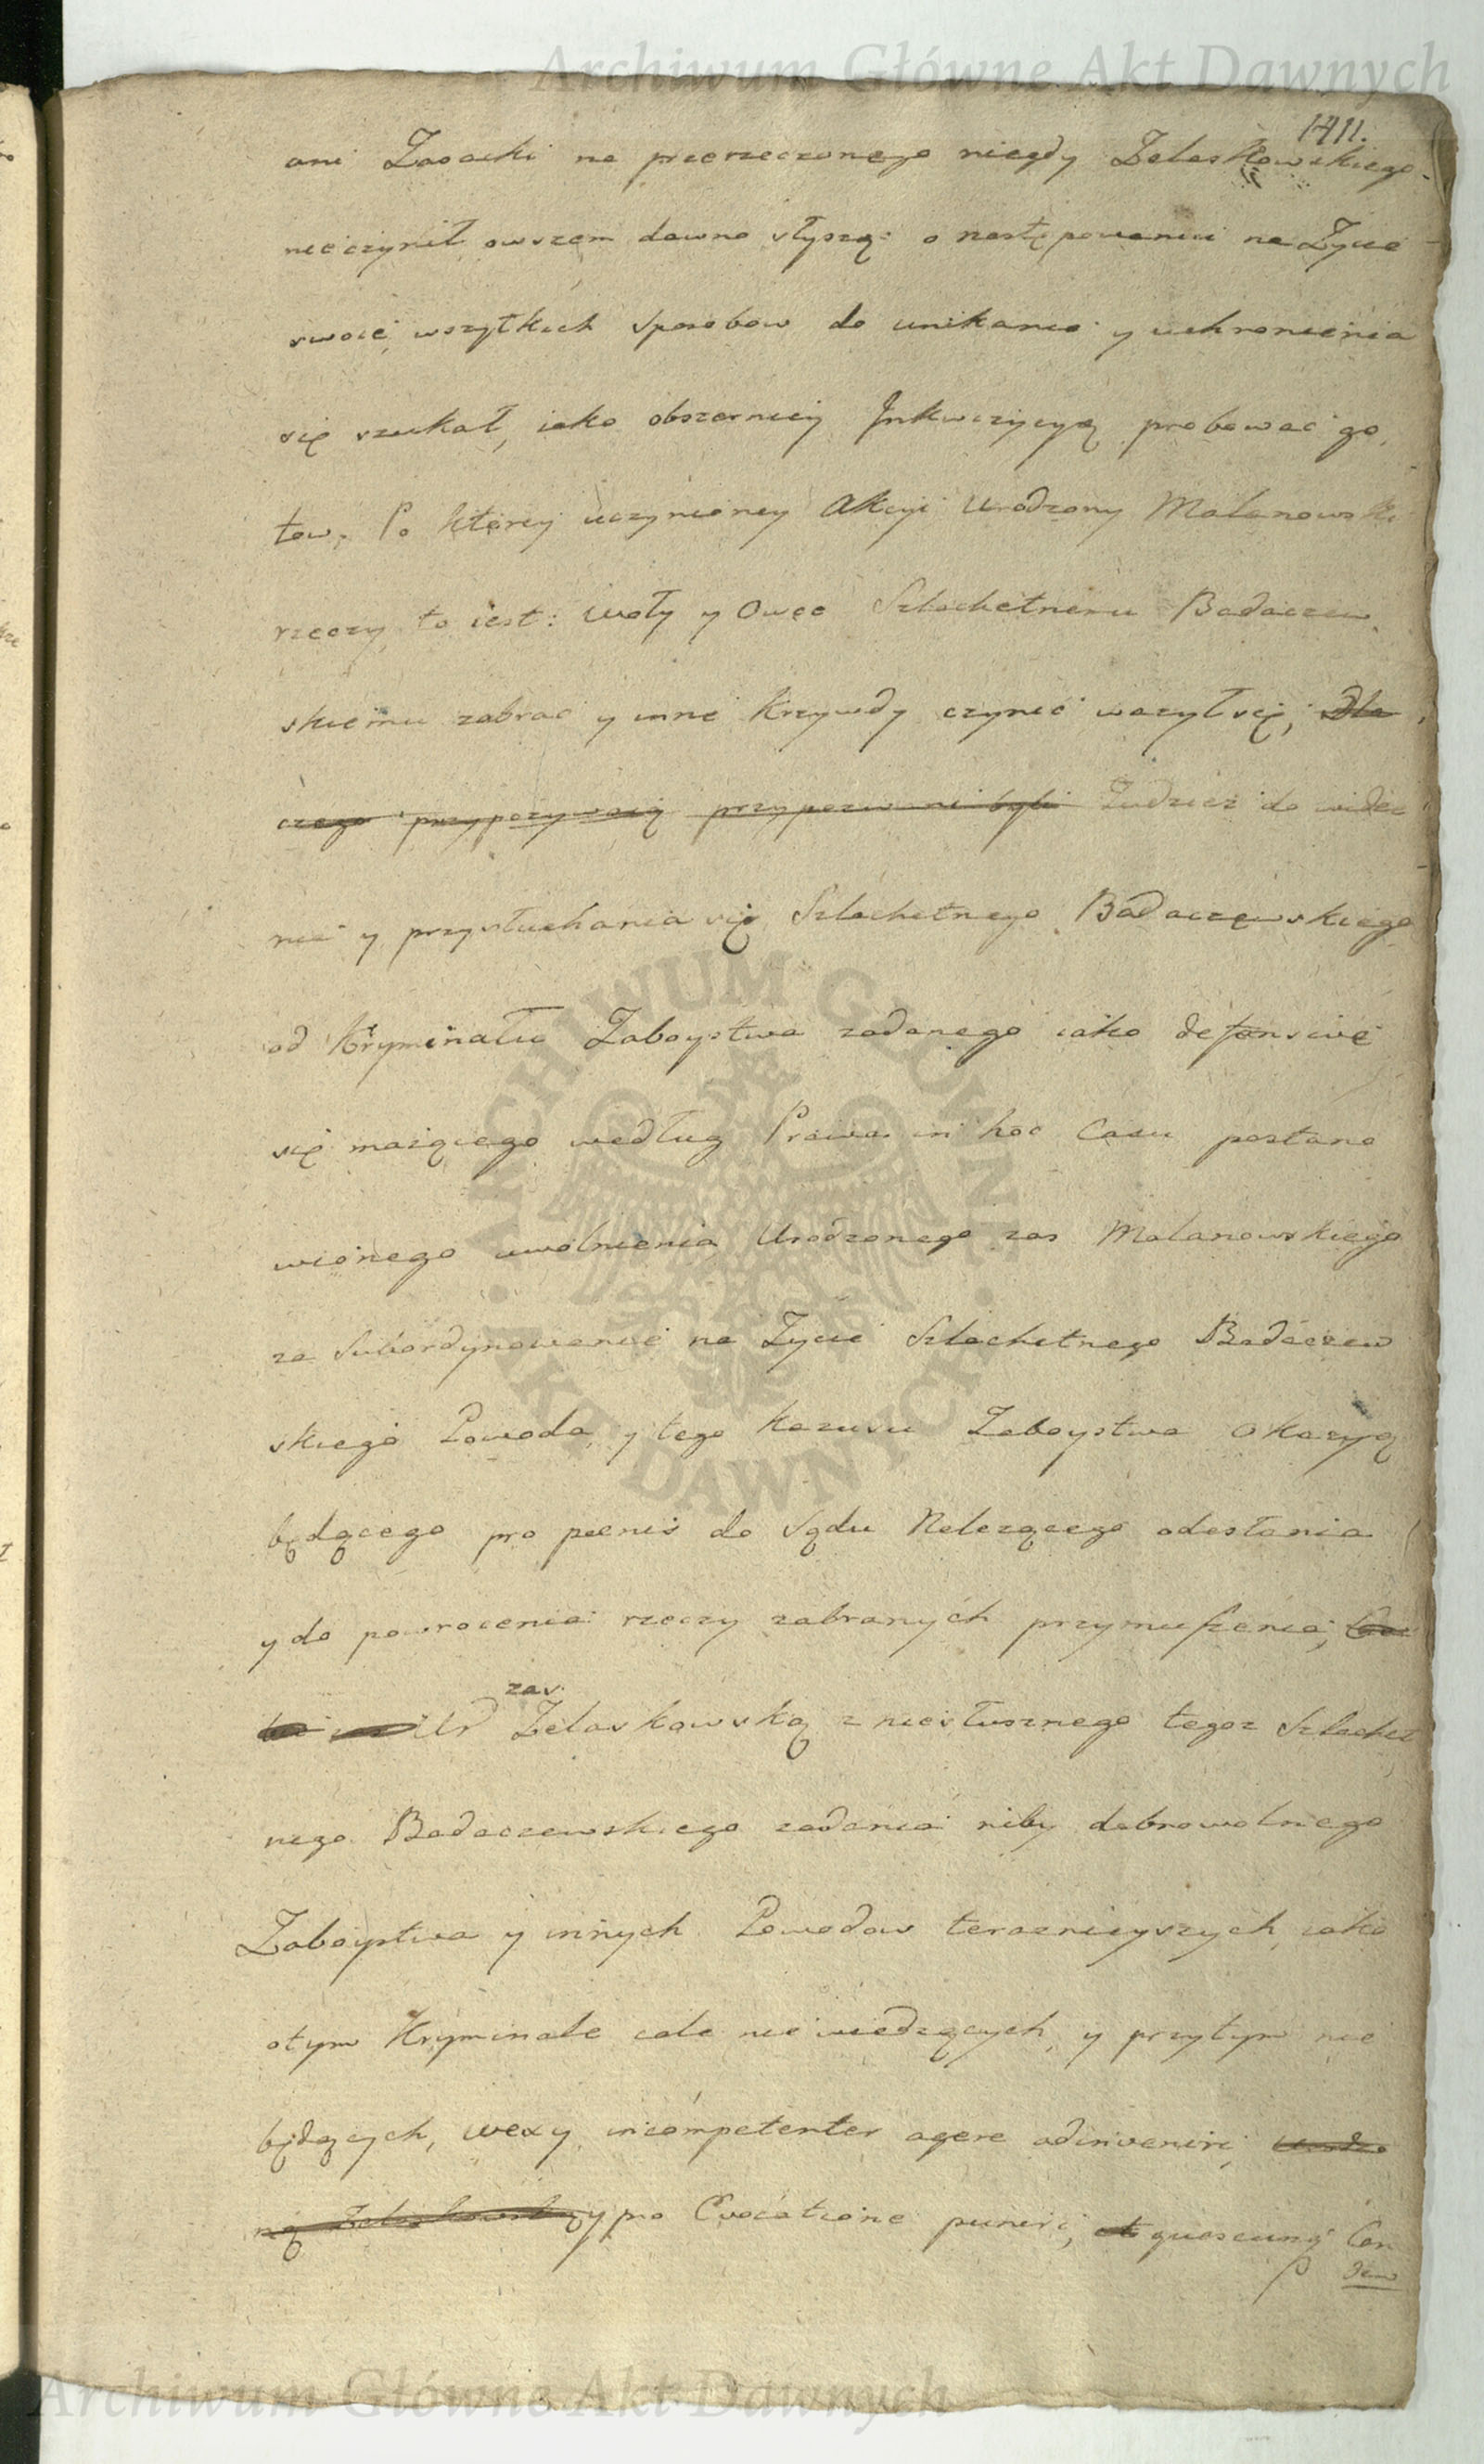 Archiwum Główne Akt Dawnych
1411.
ani Zasacki na przerzeczonego niegdy Zelaskowskiego
nie czynił, owszem dawno słysząc o następowaniu na Zycie
swoie, wszytkich sposobow do unikania y uchronienia
się szukał, iako obszerniey Jnkwizycyą probować go,
tow, Po ktorey uczynioney Akcyi Urodzony Malanowski
rzeczy to iest: Woły y Owce Szlachetnemu Badaczew
skiemu zabrać y inne Krzywdy czynić ważył się; Dla
czego przypozywaią przypozwani byli Tudziez do widze
nia y przysłuchania się Szlachetnego Badaczewskiego
od Kryminału Zaboystwa zadanego iako defensive
się maiącego według Prawa in hoc Casu postano
wionego uwolnienia, Urodzonego zas Malanowskiego
za Subordynowanie na Zycie Szlachetnego Badaczew
skiego Powoda, y tego kazusu Zaboystwa Okazyą
będącego pro poenis do Sądu Nalezącego odesłania
y do powrocenia rzeczy zabranych przymuszenia;
zas
Ur Zelaskowską z niesłusznego tegoz Szlachet
nego Badaczewskiego zadania niby dobrowolnego
Zaboystwa y innych Powodow teraznieyszych, iako
o tym Kryminale cale nie wiedzących, y przytym nie
będących, wexy, incompetenter agere adinveniri,
y pro Evocatione puniri, et quoscunq Con
Dem
ARCHIWUM GŁÓWNE · AKT DAWNYCH ·
Archiwum Główne Akt Dawnych